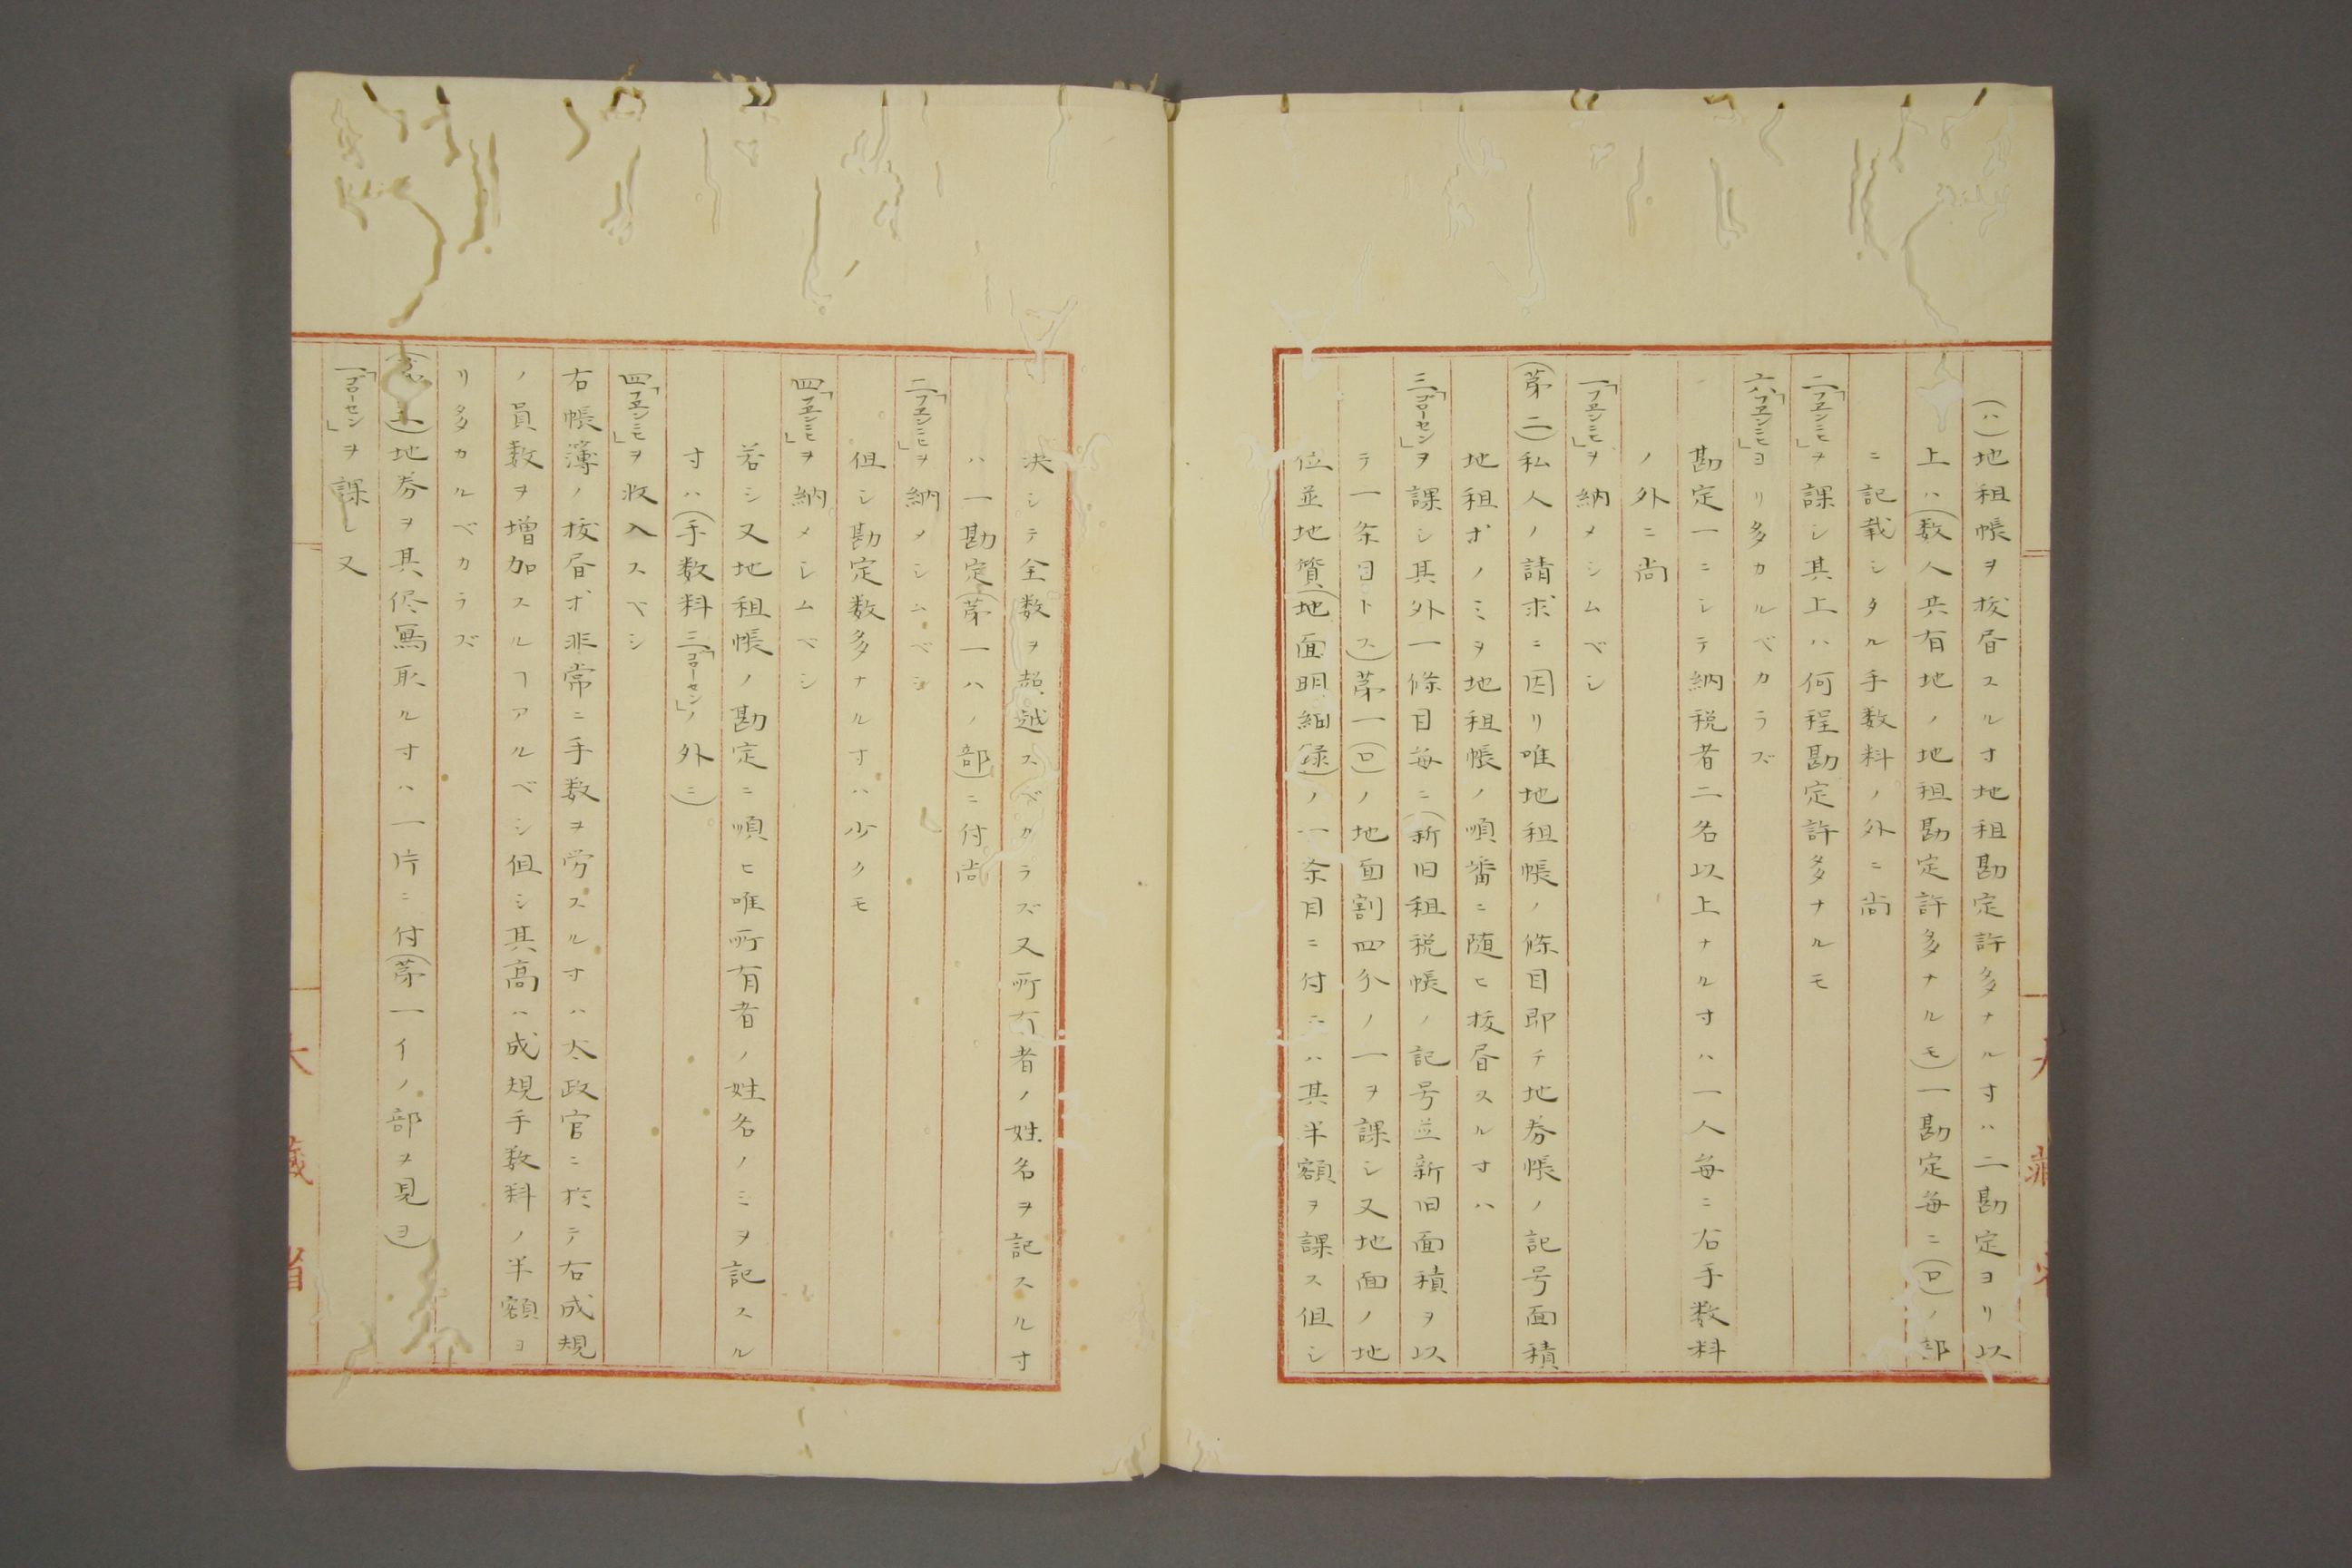 (ハ)地租帳ヲ抜眉スルヿ地租勘定許多ナルヿハ二勘定ヨリ以
上ハ(数人共有地ノ地租勘定許多ナルモ)一勘定毎ニ(ロ)ノ部
ニ記載シタル手数料ノ外ニ尚
二「フエンニヒ」ヲ課シ其上ハ何程勘定許多ナルモ
六八「フエンニヒ」ヨリ多カルベカラズ
勘定一ニシテ納税者二名以上ナルヿハ一人毎ニ右手数料
ノ外ニ尚
一「フエンニヒ」ヲ納メシムベシ
(第二)私人ノ請求ニ因リ唯地租帳ノ條目即チ地券帳ノ記号面積
地租ホノミヲ地租帳ノ順番ニ随ヒ抜眉スルヿハ
三「ゴローセン」ヲ課シ其外一條目毎ニ(新旧租税帳ノ記号並新旧面積ヲ以
テ一条目トス)第一(ロ)ノ地面割四分ノ一ヲ課シ又地面ノ地
位並地質(地面明細録)ノ一条目ニ付ニハ其半額ヲ課ス但シ
決シテ全数ヲ超越スベカラズ又所有者ノ姓名ヲ記スルヿ
ハ一勘定(第一ハノ部)ニ付尚
二「フエンニヒ」ヲ納メシムベシ
但シ勘定数多ナルヿハ少クモ
四「フエンニヒ」ヲ納メシムベシ
若シ又地租帳ノ勘定ニ順ヒ唯所有者ノ姓名ノミヲ記スル
ヿハ(手数料三「ゴローセン」ノ外ニ)
四「フエンニヒ」ヲ收入スベシ
右帳簿ノ抜眉ホ非常ニ手数ヲ労スルヿハ太政官ニ於テ右成規
ノ員数ヲ増加スルヿアルベシ但シ其高ハ成規手数料ノ半額ヨ
リ多カルベカラズ
地券ヲ其侭寫取ルヿハ一片ニ付(第一イノ部ヲ見ヨ)
一「ゴローセン」ヲ課シ又
大藏省